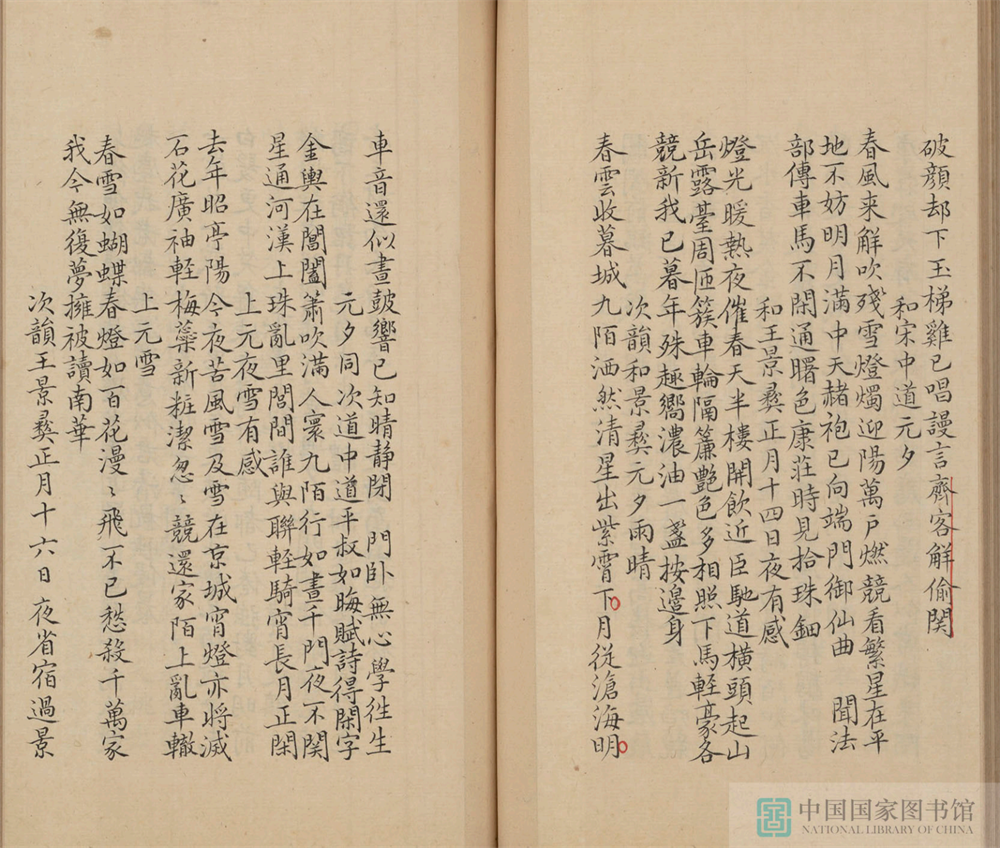 破顔却下玉梯雞已唱謾言齊客解偷関
和宋中道元夕
春風来解吹殘雪燈燭迎陽萬戸燃競看繁星在平
地不妨明月滿中天赭袍已向端門御仙曲 聞法
部傳車馬不閑通曙色康莊時見拾珠鈿
和王景彝正月十四日夜有感
燈光暖熱夜催春天半樓開飲近臣馳道横頭起山
岳露臺周匝簇車輪隔簾艷色多相照下馬輕豪各
競新我已暮年殊趣嚮濃油一盞按邊身
次韻和景彝元夕雨晴
春雲收暮城九陌洒然清星出紫霄下月從滄海明
車音還似晝皷響已知晴静閉 門卧無心學徃生
元夕同次道中道平叔如晦賦詩得閑字
金輿在閶闔簫吹滿人寰九陌行如晝千門夜不関
星通河漢上珠亂里閭間誰與聯輕騎宵長月正閑
上元夜雪有感
去年昭亭陽今夜苦風雪及雪在京城宵燈亦將滅
石花廣袖輕梅蘂新粧潔忽〻競還家陌上亂車轍
上元雪
春雪如蝴蝶春燈如百花漫〻飛不已愁殺千萬家
我今無復夢擁被讀南華
次韻王景彝正月十六日夜省宿過景
中国国家图书馆
NATIONAL LIBRARY OF CHINA